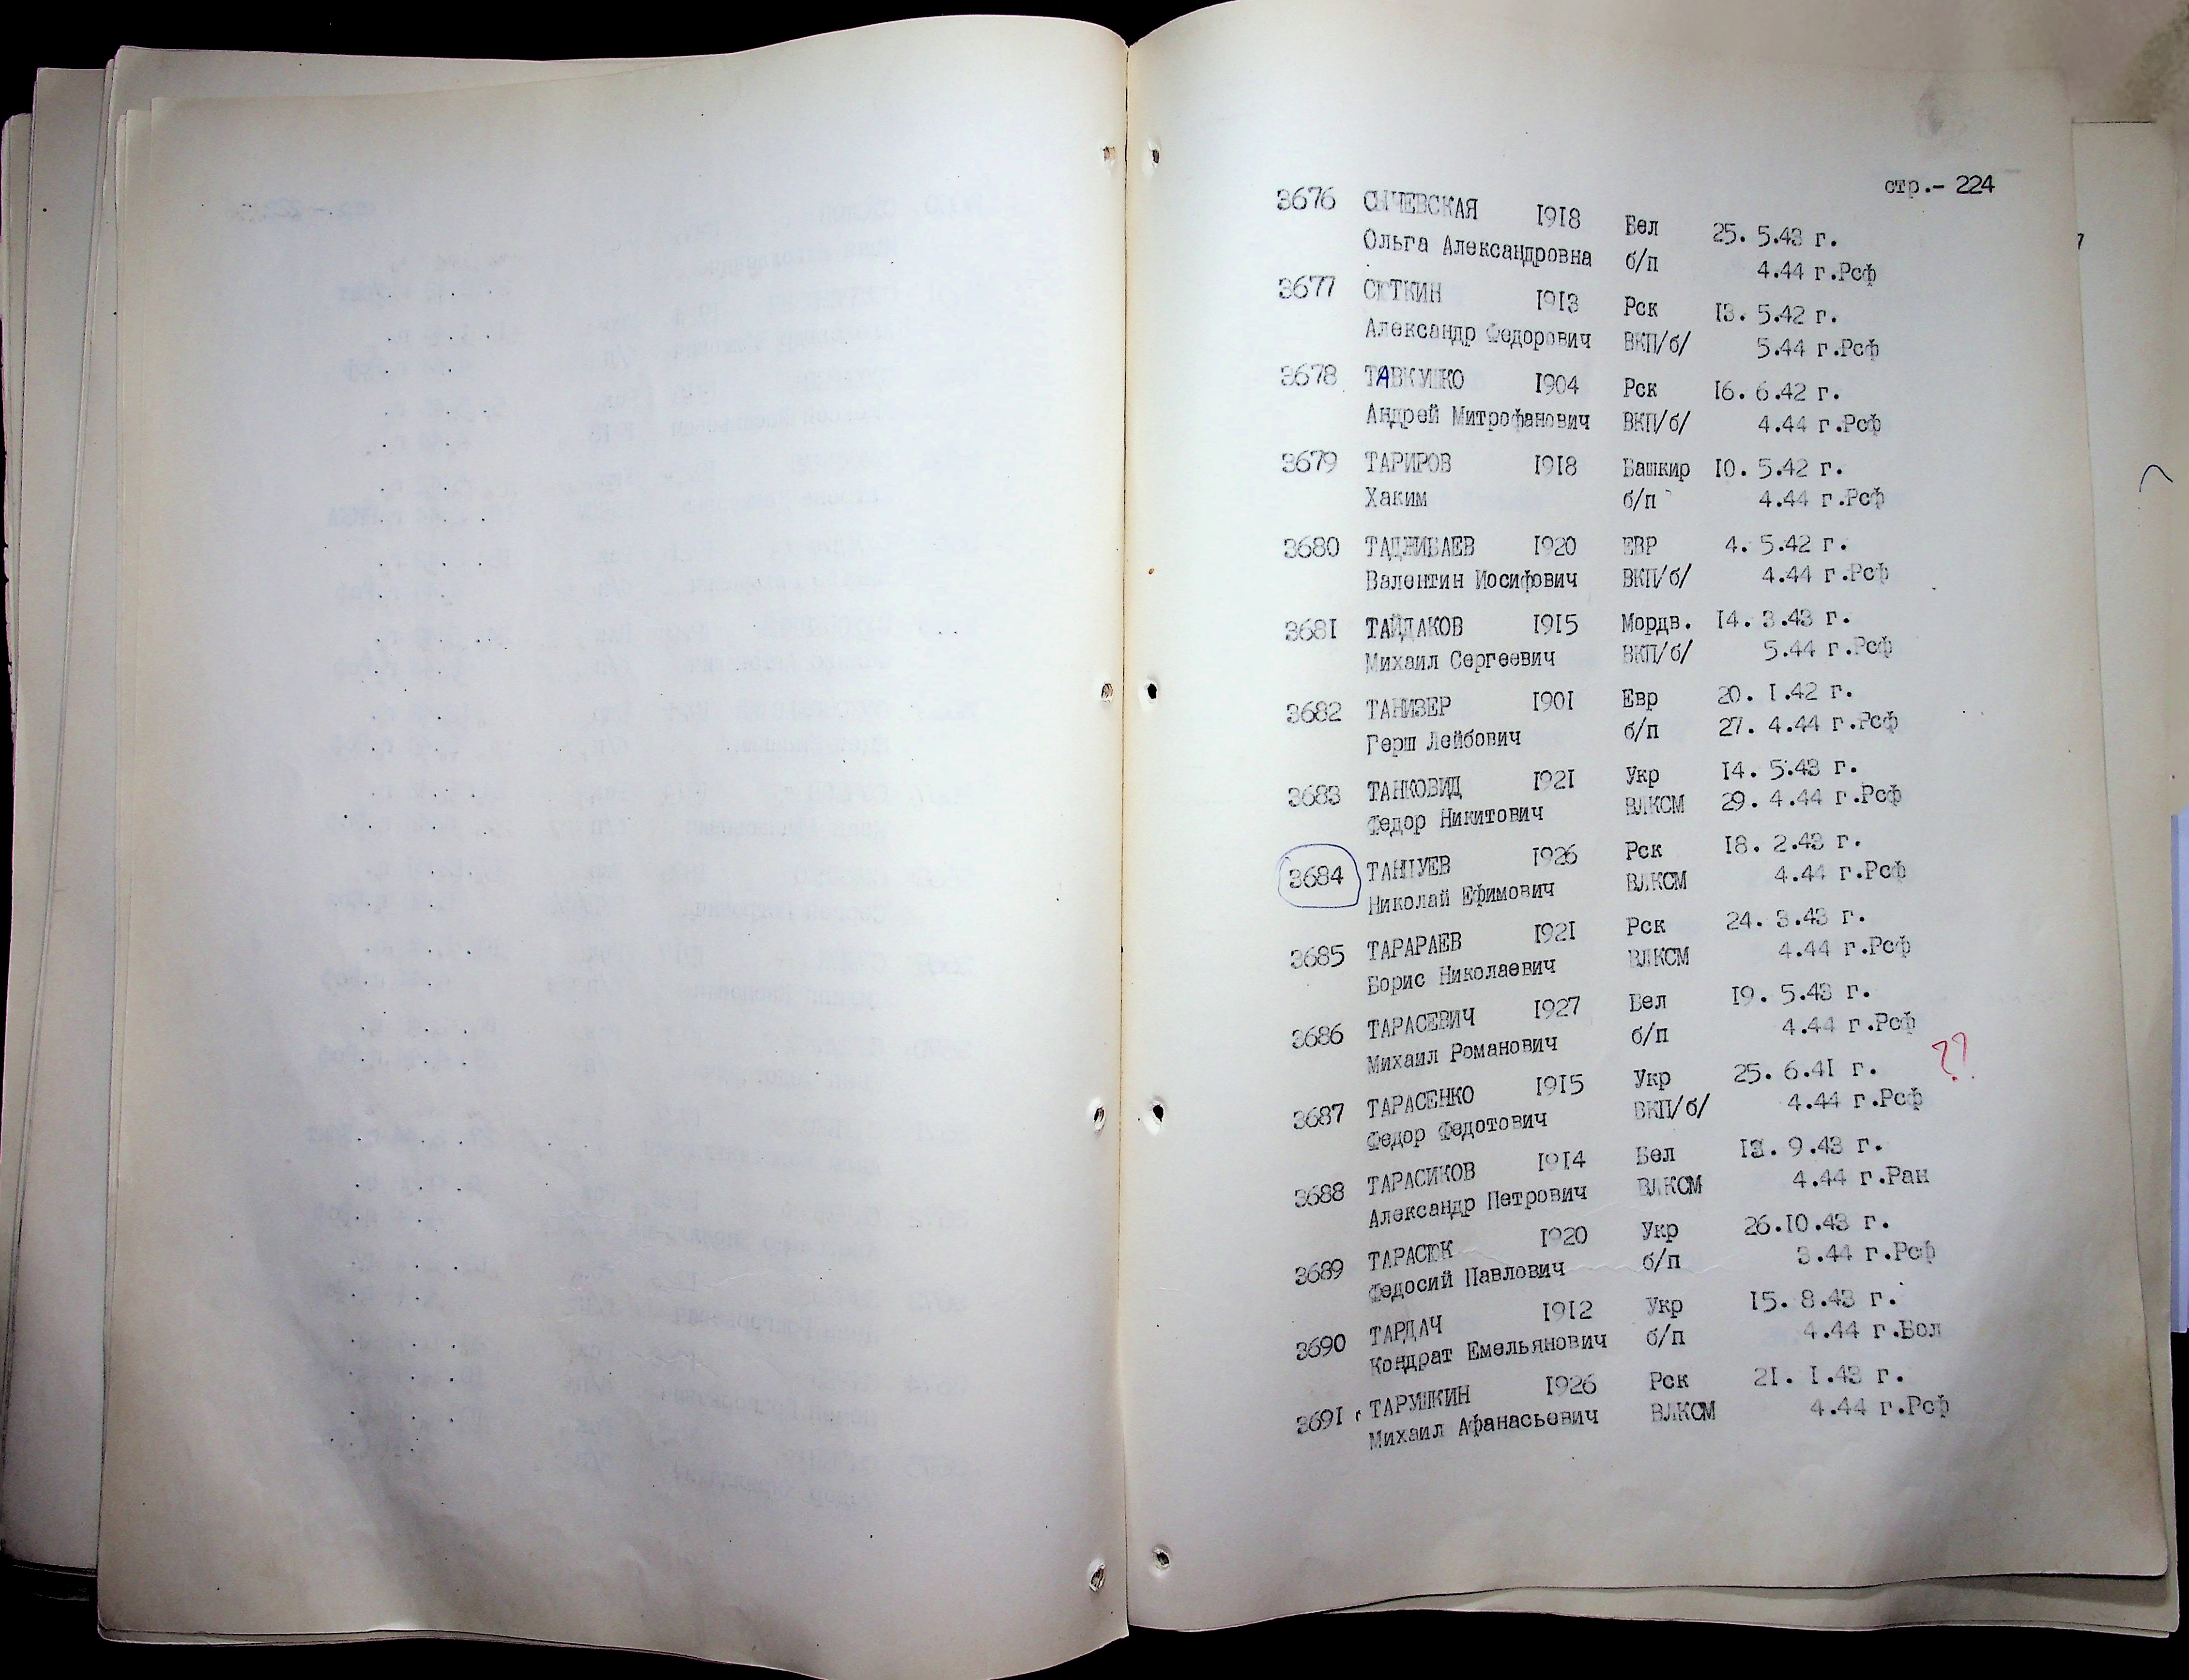 стр.- 224
3676 СЫЧЕВСКАЯ 1918 Бел 25. 5.43 г.
Ольга Александровна б/п 4.44 г.Рсф
3677 СЮТКИН 1913 Рск 13. 5.42 г.
Александр Федорович ВКП/б/ 5.44 г.Рсф
3678 ТАВКУШКО 1904 Рск 16. 6.42 г.
Андрей Митрофанович ВКП/б/ 4.44 г.Рсф
3679 ТАРИРОВ 1918 Башкир 10. 5.42 г.
Хаким б/п 4.44 г.Рсф
3680 ТАДЖИБАЕВ 1920 ЕВР 4. 5.42 г.
Валентин Иосифович ВКП/б/ 4.44 г.Рсф
3681 ТАЙДАКОВ 1915 Мордв. 14. 3.43 г.
Михаил Сергеевич ВКП/б/ 5.44 г.Рсф
3682 ТАНИЗЕР 1901 Евр 20. 1.42 г.
Герш Лейбович б/п 27. 4.44 г.Рсф
3683 ТАНКОВИД 1921 Укр 14. 5.43 г.
Федор Никитович ВЛКСМ 29. 4.44 г.Рсф
3684 1926 Рск 18. 2.43 г.
Николай Ефимович ВЛКСМ 4.44 г.Рсф
3685 ТАРАРАЕВ 1921 Рск 24. 3.43 г.
Борис Николаевич ВЛКСМ 4.44 г.Рсф
3686 ТАРАСЕВИЧ 1927 Бел 19. 5.43 г.
Михаил Романович б/п 4.44 г.Рсф
??
3687 ТАРАСЕНКО 1915 Укр 25. 6.41 г.
Федор Федотович ВКП/б/ 4.44 г.Рсф
3688 ТАРАСИКОВ 1914 Бел 9.43 г.
Александр Петрович ВЛКСМ 4.44 г.Ран
3689 ТАРАСЮК 1920 Укр 26.10.43 г.
Федосий Павлович б/п 3.44 г.Рсф
3690 ТАРДАЧ 1912 Укр 15. 8.43 г.
Кондрат Емельянович б/п 4.44 г.Бол
3691 ТАРУШКИН 1926 Рск 21. 1.43 г.
Михаил Афанасьевич ВЛКСМ 4.44 г.Рсф